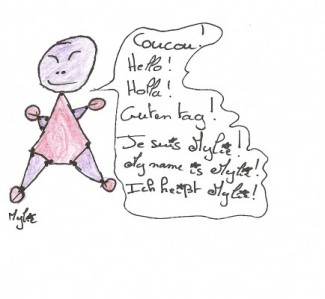 Coucou!
Hello!
Holla!
Guten tag!
Je suis Mylie!
My name is Mylie!
Ich heißt Mylie!
Mylie